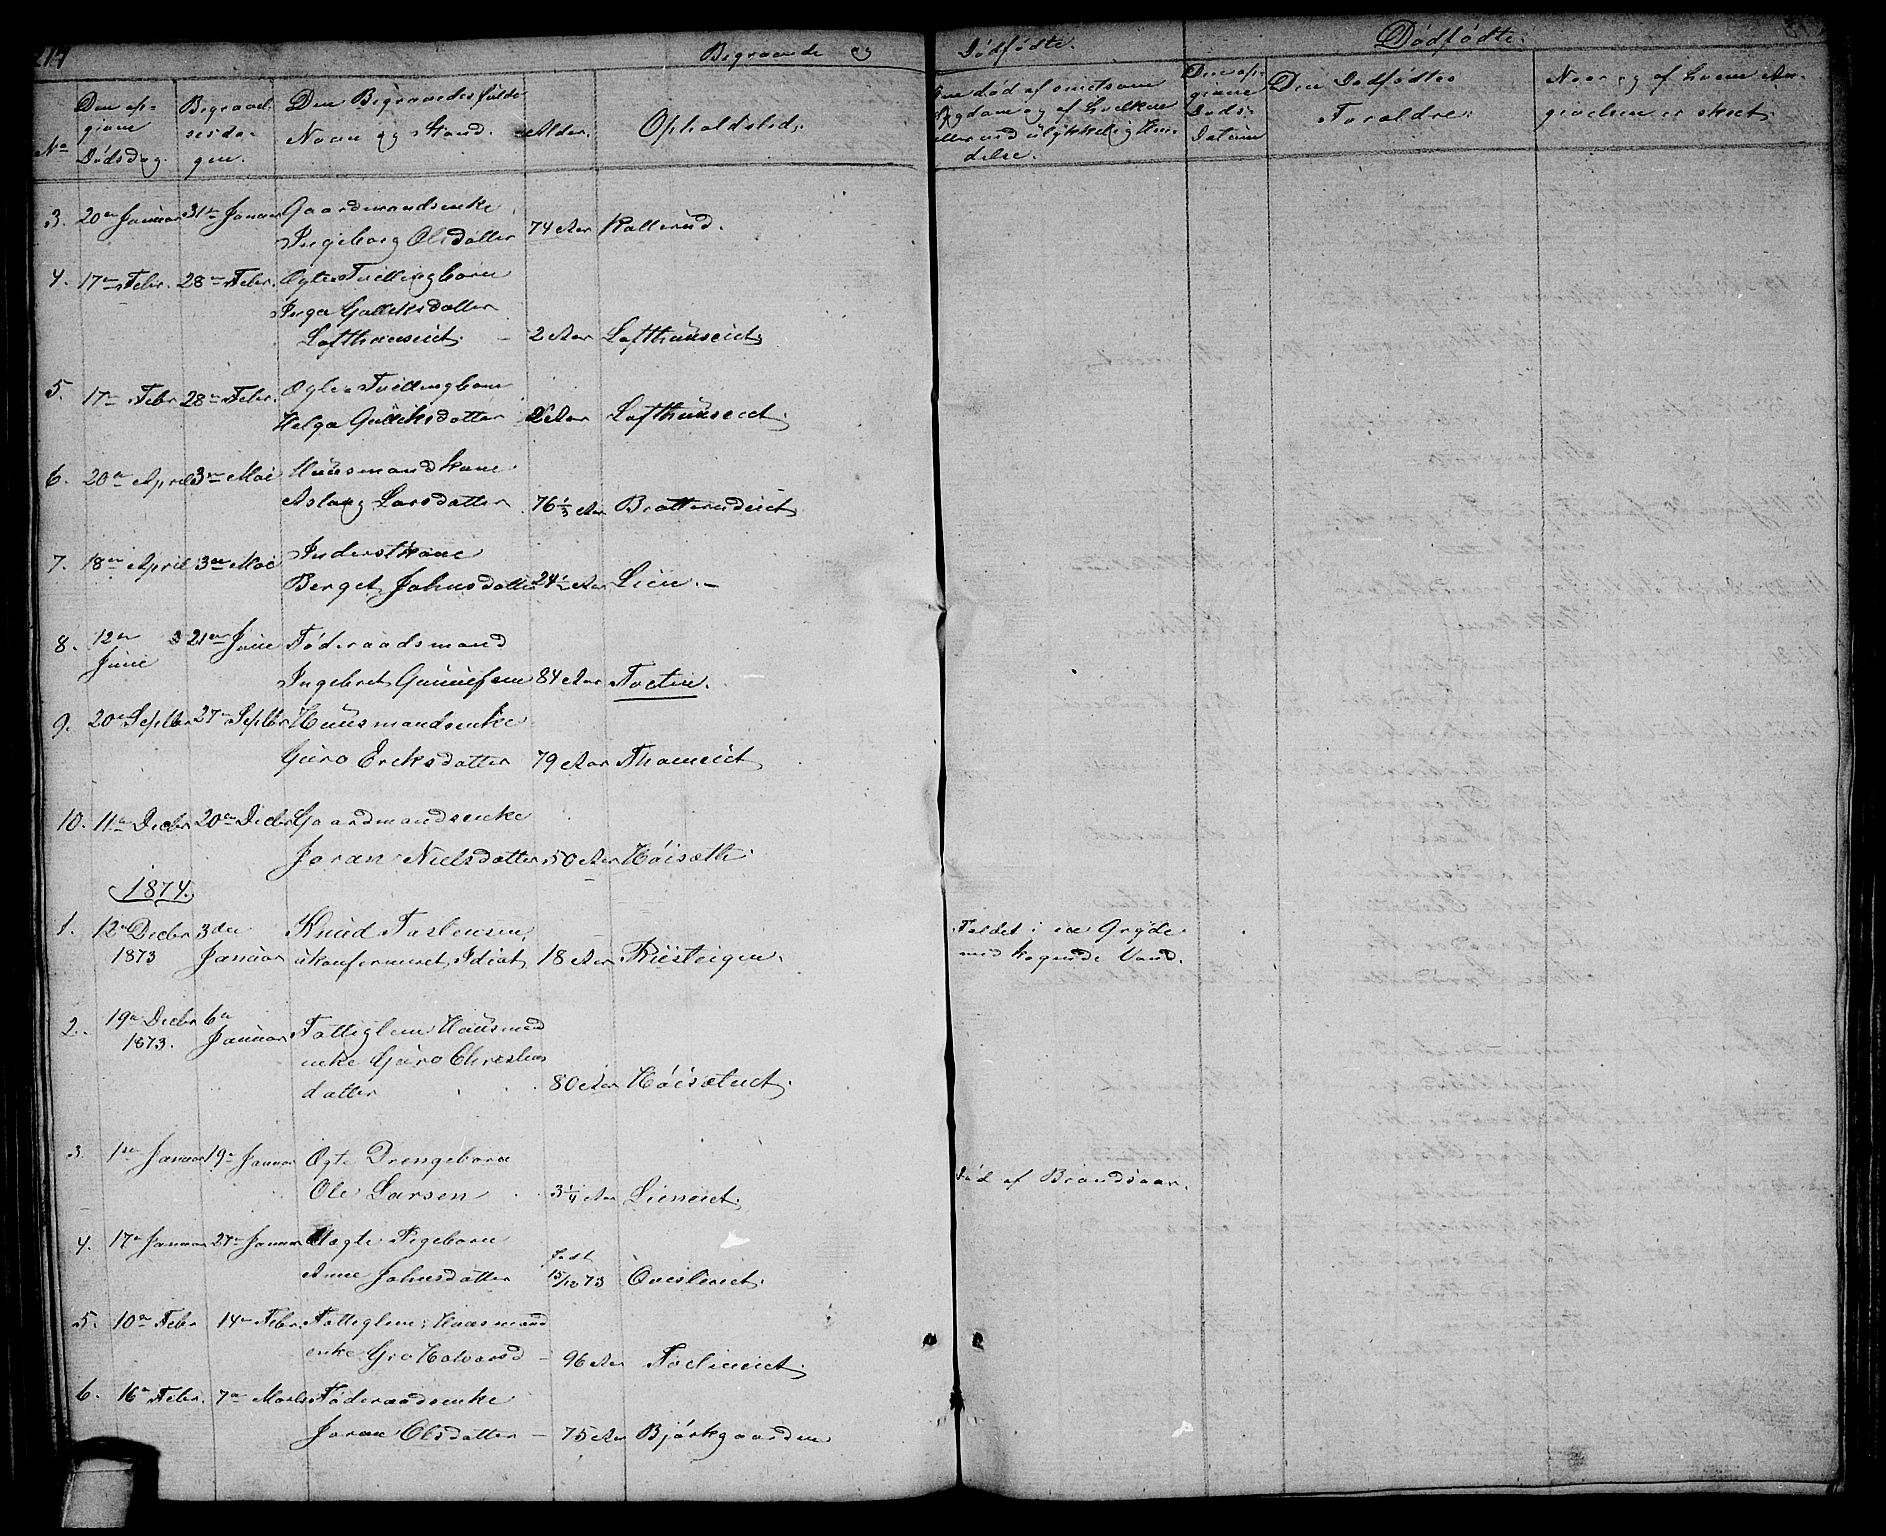 Begravede og Dødfødte.
Dødfødte.
No
Den op-
givne
Dødsdag.
Begravel-
sesda-
gen.
Den Begravedes fulde
Navn og Stand.
Alder.
Opholdsted.
Om død af smitsom
Sygdom og af hvilken
eller ved ulykkelig Hæn-
delse.
Den op-
givne
Døds-
Datum
Den Dødfødtes
Forældre.
Naar og af hvem An-
givelsen er skeet.
3. 20de Januar 31te Januar Gaardmandsenke
Ingeborg Olsdatter 74 Aar Kallerud.
4. 17de Febr. 28de Febr. Ægte Tvillingbarn
Inga Gulliksdatter
Lofthuuseiet. 2 Aar Lofthuuseiet.
5. 17de Febr 28de Febr. Ægte Tvillingbarn
Helga Gulliksdatter 2 Aar Lofthuuseiet.
6. 20de April 3die Mai Huusmandkone
Aslaug Larsdatter 76 1/3 Aar Bratterudeiet
7. 18de April 3die Mai Inderstkone
Berget Johnsdatter 24 1/2 Aar Lien. -
8. 12te Juni 21de Juni Føderaadsmand
Ingebret Gunnufsen 84 Aar
9. 20de Septbr 27de Septbr Huusmandsenke
Guro Eriksdatter 79 Aar
10. 11te Decbr 20de Decbr Gaardmandsenke
Joran Nielsdatter 50 Aar Høisæth.
1874.
1. 12te Decbr 3die Knud Tostensen,
1873 Januar ukonfirmeret, Idiot, 18 Aar
Faldet i en Gryde
med kogende Vand.
2. 19de Decbr 6te
1873. Januar Fattiglem, Huusmand
enke Guro Christens
datter 80 Aar Høisæteiet.
3. 1ste Januar 19de Januar Ægte Drengebarn
Ole Larsen 3 1/4 Aar Lieneiet.
Død af Brandsaar.
4. 17de Januar 27de Januar Uægte Pigebarn
Anne Johnsdatter født
15/10 73
5. 10de Febr 14de Febr. Fattiglem, Huusmand
enke Gro Halvorsd - 96 Aar
6. 16de Febr. 7de Marts Føderaadsenke
Joran Olsdatter - 75 Aar Bjørkgaarden